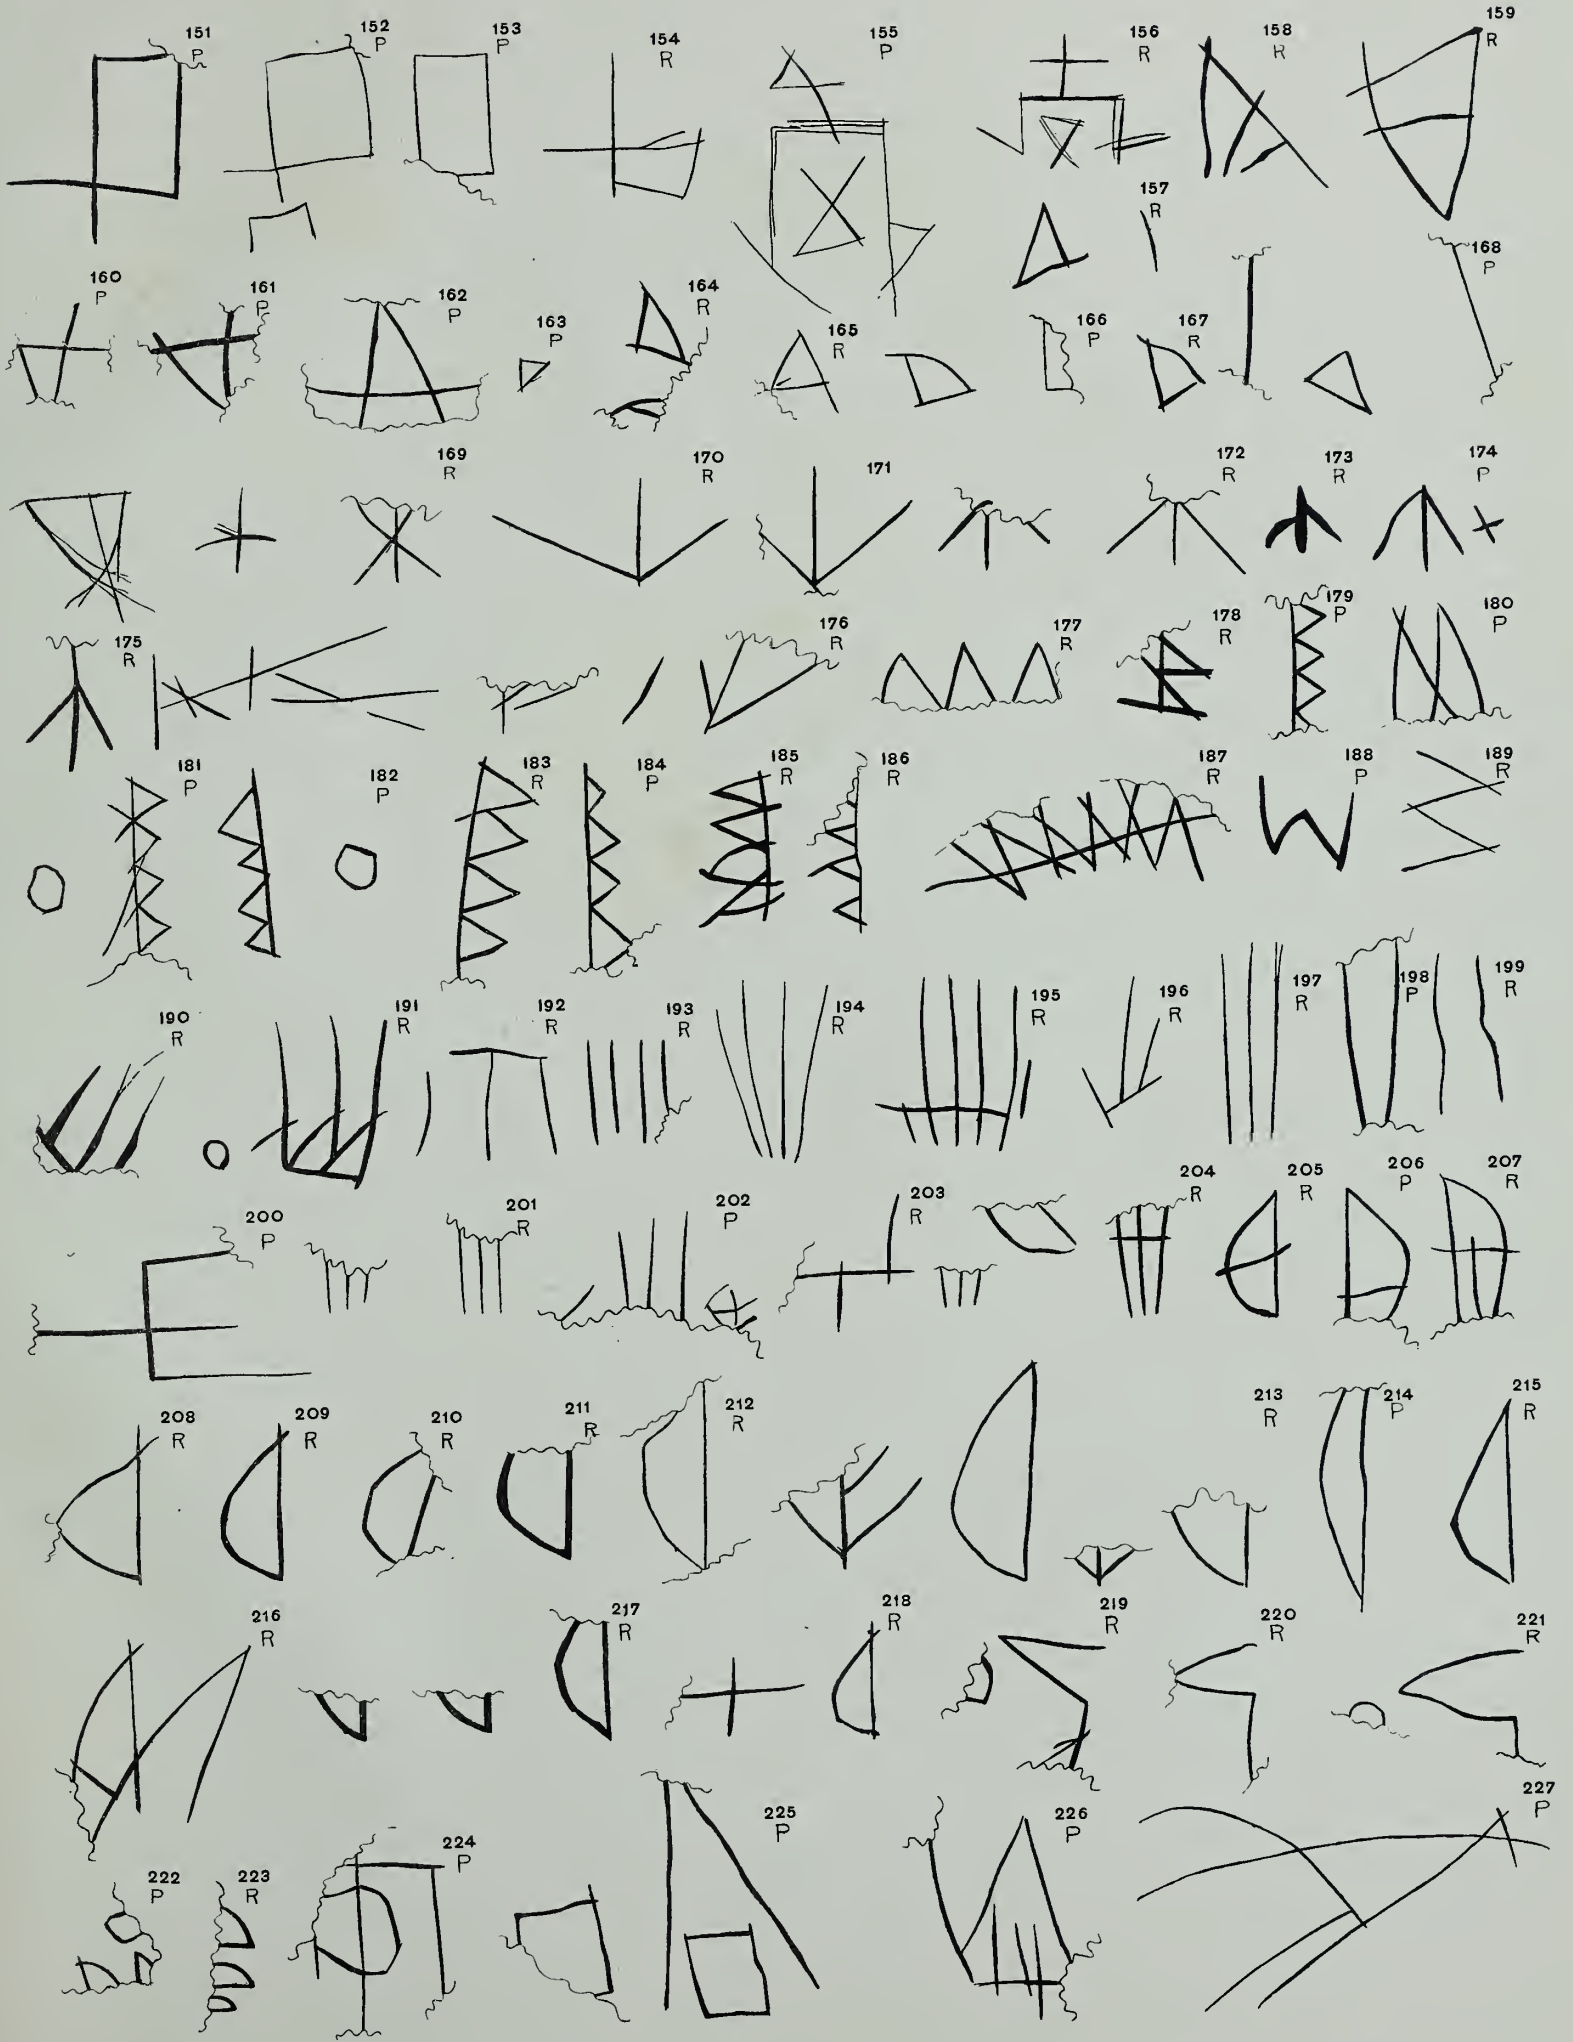 151
P
152
P
153
P
154
R
155
P
156
R
158
R
159
R
157
R
160
P
161
P
162
P
163
P
164
R
165
R
166
P
167
R
168
P
169
R
170
R
171
172
R
173
R
174
P
175
R
176
R
177
R
178
R
179
P
180
P
181
P
182
P
183
R
184
P
185
R
186
R
187
R
188
P
189
R
190
R
191
R
192
R
193
R
194
R
195
R
196
R
197
R
198
P
199
R
200
P
201
R
202
P
203
R
204
R
205
R
206
P
207
R
208
R
209
R
210
R
211
R
212
R
213
R
214
P
215
R
216
R
217
R
218
R
219
R
220
R
221
R
222
P
223
R
224
P
225
P
226
P
227
P